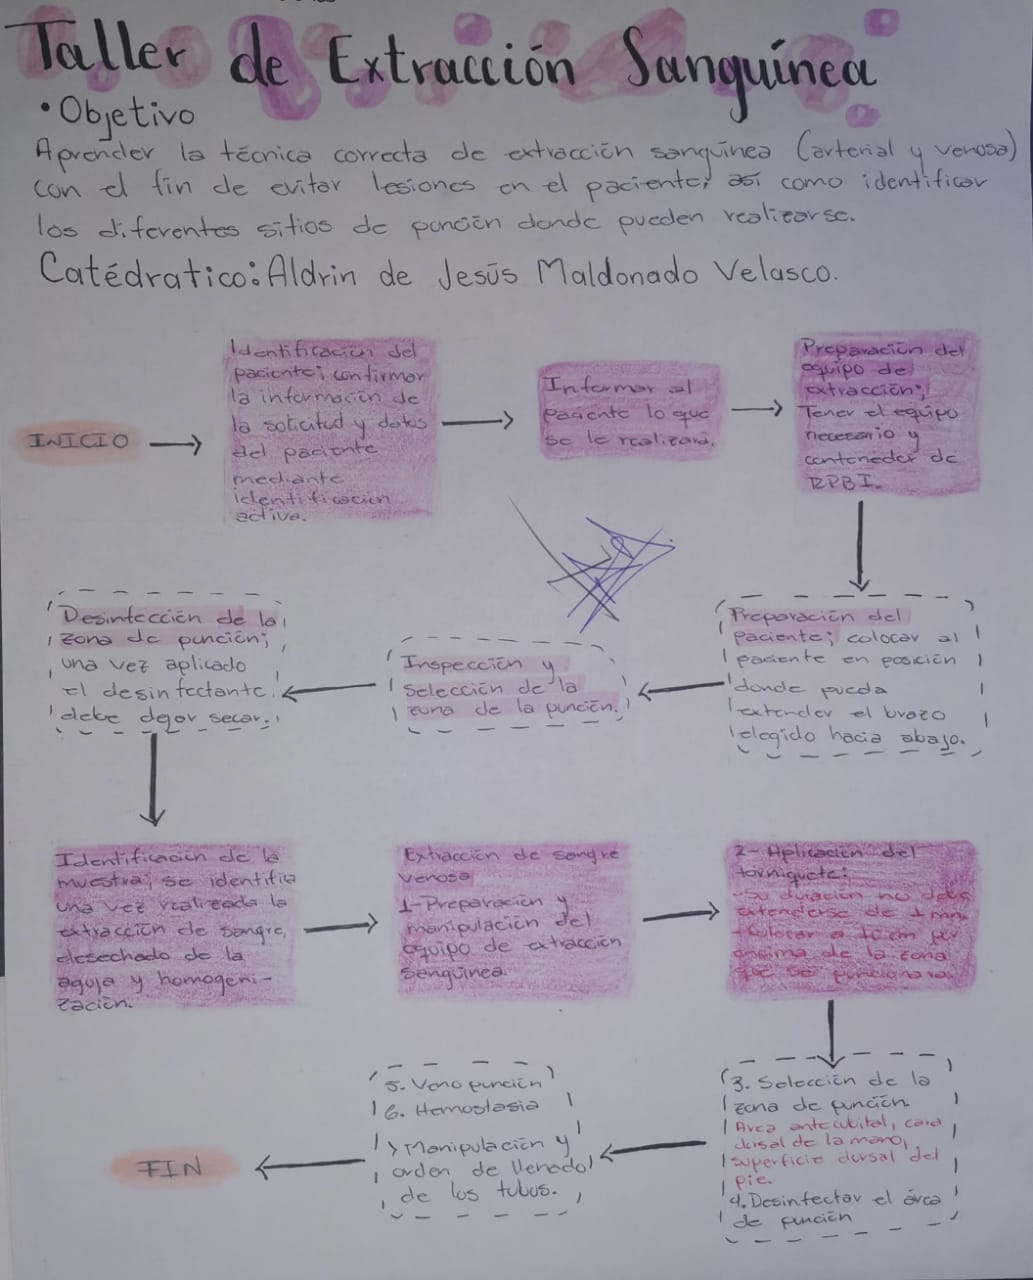 Taller de Extracción Sanguínea
• Objetivo
Aprender la técnica correcta de extracción sanguínea (arterial y venosa)
con el fin de evitar lesiones en el paciente, así como identificar
los diferentes sitios de punción donde pueden realizarse.
Catédratico: Aldrin de Jesús Maldonado Velasco.
INICIO
Identificación del
paciente; confirmar
la información de
la solicitud y datos
del paciente
mediante
identificación
activa.
Informar al
paciente lo que
se le realizará.
Preparación del
equipo de
extracción;
Tener el equipo
necesario y
contenedor de
RPBI.
Preparación del
paciente; colocar al
paciente en posición
donde pueda
extender el brazo
elegido hacia abajo.
Inspección y
selección de la
zona de la punción.
Desinfección de la
zona de punción;
una vez aplicado
el desinfectante
debe dejar secar.
Identificación de la
muestra; se identifica
una vez realizada la
extracción de sangre,
desechado de la
aguja y homogeni-
zación.
Extracción de sangre
venosa
1-Preparación y
manipulación del
equipo de extracción
sanguínea.
2- Aplicación del
torniquete:
-Su duración no debe
extenderse de 1 min
-Colocar a 10 cm por
encima de la zona
que se puncionara.
3. Selección de la
zona de punción.
Area antecubital, cara
dorsal de la mano,
superficie dorsal del
pie.
4. Desinfectar el área
de punción
5. Veno punción
6. Hemostasia
> Manipulación y
orden de llenado
de los tubos.
FIN